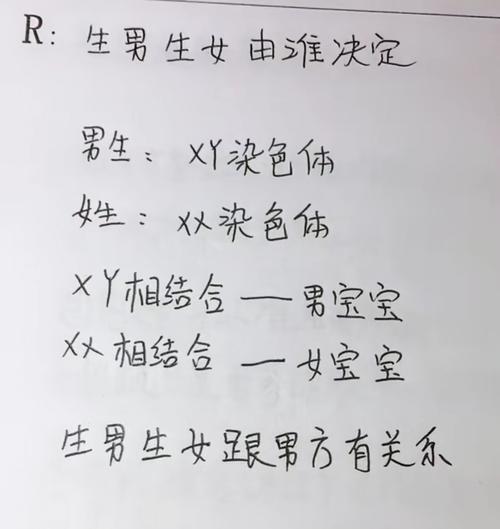 R: 生男生女由谁决定
男生: XY染色体
女生: XX染色体
XY相结合 — 男宝宝
XX相结合 — 女宝宝
生男生女跟男方有关系